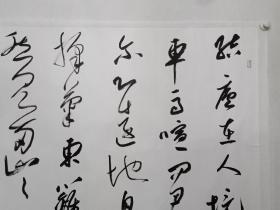 結廬在人境
車馬喧问君
尔心遠地自
採菊東籬
然见南山々